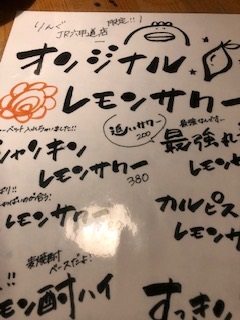 りんぐ
JR六甲道店
限定!!
オンジナル
レモンサワー
ペット入れちゃいました!!
シャンキン
レモンサワー
380
追いサワー
200
最強れ
レモンサワ
カルピス
レモンサワ
レモンサワー
麦焼酎
ベースだよ!
モン酎ハイ
すっきり